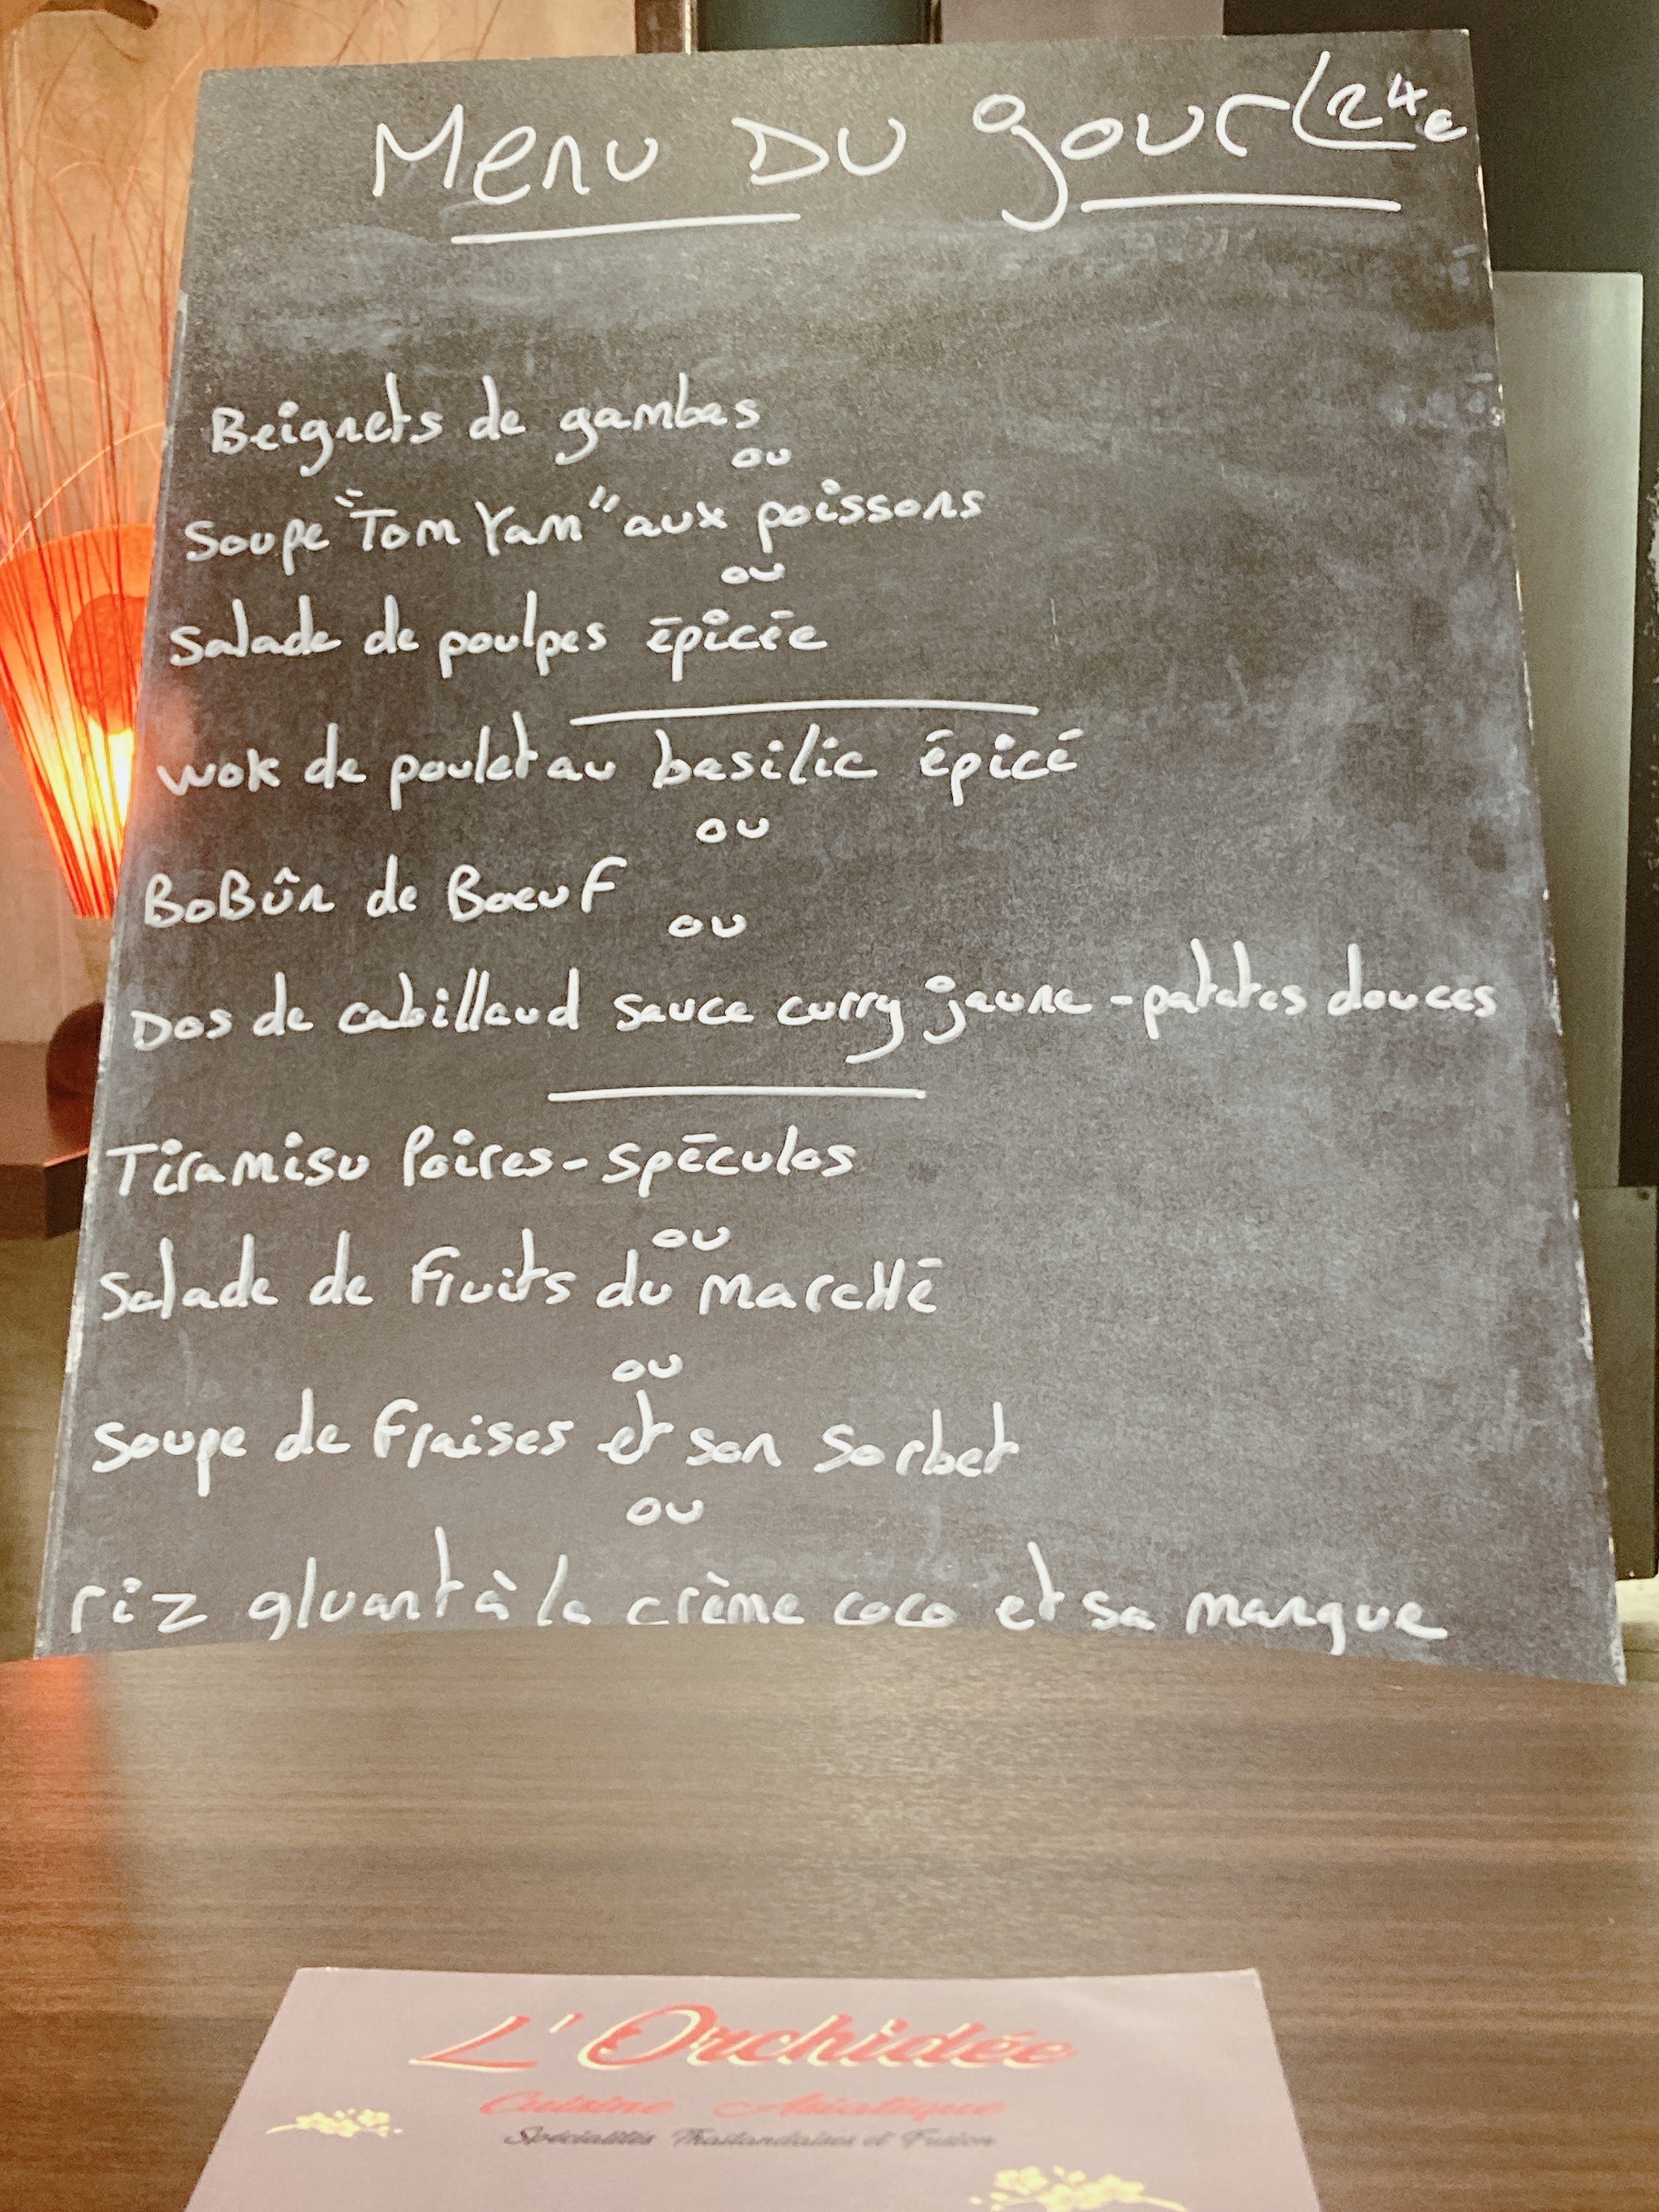 Menu DU jour 24€
Beignets de gambas
ou
Soupe "Tom Yam" aux poissons
ou
Salade de poulpes épicée
wok de poulet au basilic épicé
ou
BoBûn de Boeuf
ou
Dos de cabillaud sauce curry jaune - patates douces
Tiramisu Poires - spéculos
ou
Salade de fruits du marcHé
ou
Soupe de fraises et son sorbet
ou
riz gluant à la crème coco et sa mangue
L'Orchidée
Cuisine Asiatique
Spécialités Thaïlandaises et Fusion